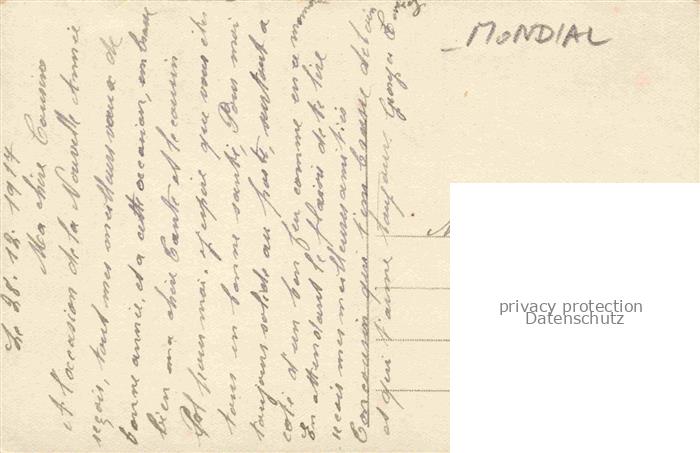 MONDIAL
Le 28.12.1917
Ma chère Cousine
A l'occasion de la Nouvelle Année
reçois, tout mes meilleurs vœux de
bonne année, et a cette occasion, embrasse
bien ma chère Tante et le cousin
pour moi. J'espère que vous êtes
tous en bonne santé, Pour moi
toujours solide au poste, surtout a
coté d'un bon feu comme en a mon
En attendant le plaisir de te lire
reçois mes meilleures amitiés
Ton cousin qui t'embrasse de loin
et qui t'aime toujours Georges
privacy protection
Datenschutz